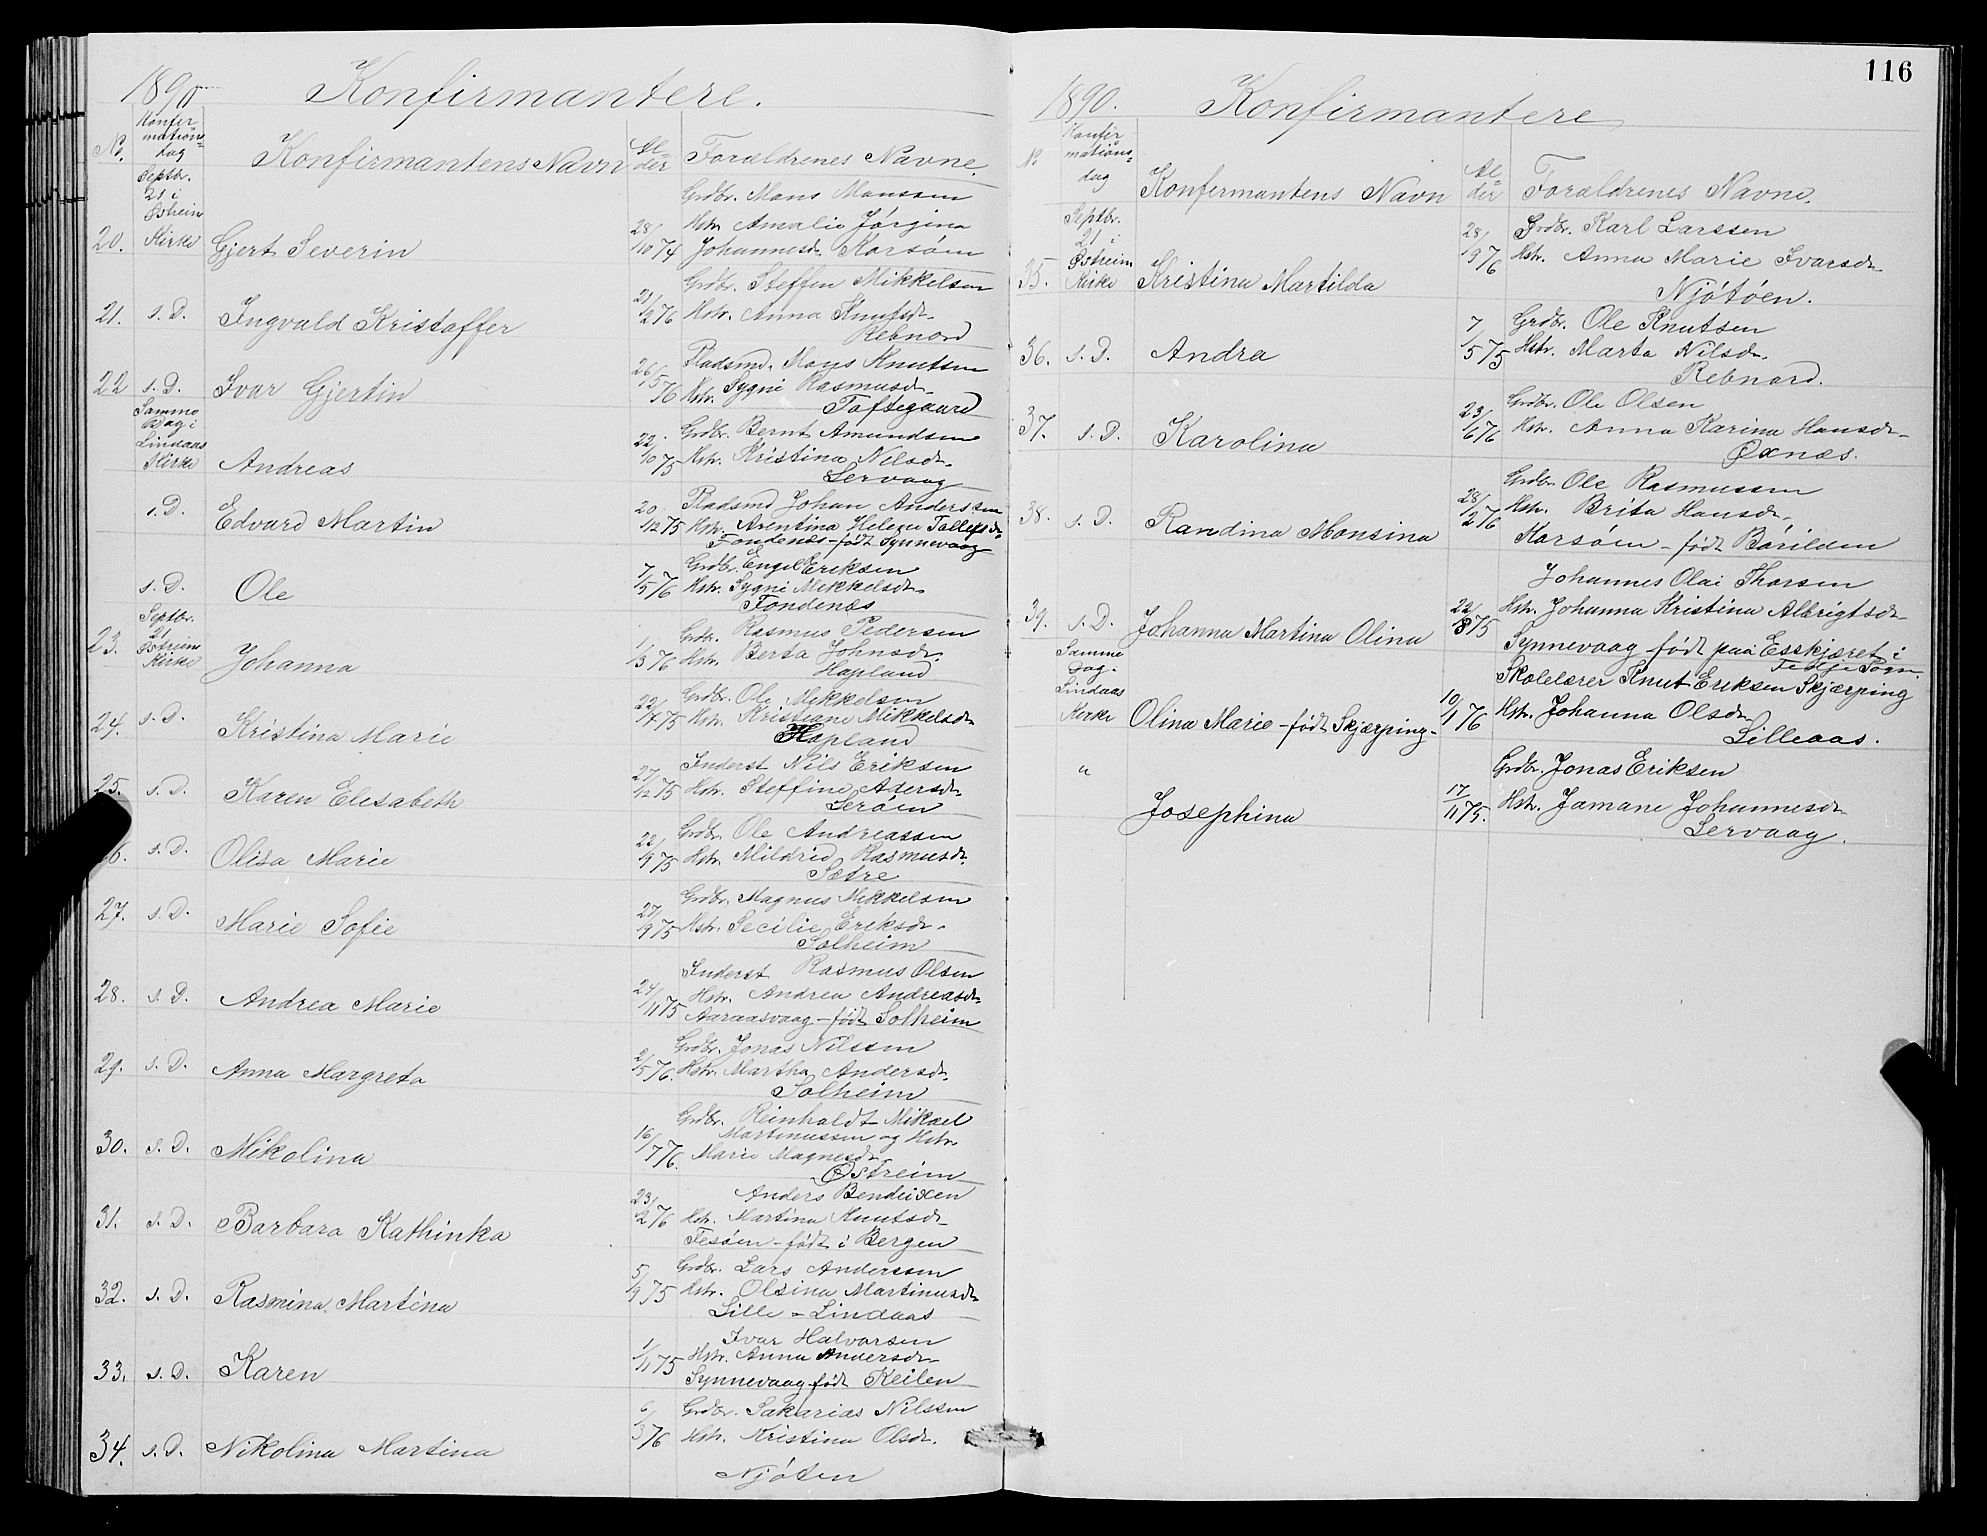 1890
Konfirmantere.
No.
Konfir
mations=
dag
Konfirmantens Navn
Al=
der
Forældrenes Navne.
Septbr.
21 i
Østreim
Kirke
20.
Gjert Severin
28/10 74
Grdbr. Mons Monssen
Hstr. Amalie Jørgina
Johannesdr. Korsøen
21.
s. D.
Ingvald Kristoffer
21/2 76
Grdbr. Steffen Mikkelsen
Hstr. Anna Knutsdr.
Rebnord
22
s. D.
Ivar Gjertin
26/5 76
Pladsmd. Mons Knutsen
Hstr. Sygni Rasmusdr.
Toftegaard
Samme
Dag i
Lindaas
Kirke
Andreas
22/10 75
Grdbr. Bernt Amundsen
Hstr. Kristina Nilsdr.
Lervaag
s. D.
Edvard Martin
20/12 75
Pladsmd Johan Anderssen
Hstr. Arentina Helene Tollefsdr.
Fondenes - født Synnevaag
s. D.
Ole
7/5 76
Grdbr. Engel Eriksen
Hstr. Sygni Mikkelsdr.
Fondenes
Septbr.
21
Østreim
Kirke
23.
Johanna
1/3 76
Grdbr. Rasmus Pedersen
Hstr. Berta Johnsdr.
Hopland
24.
s. D.
Kristina Marie
22/7 75
Grdbr. Ole Mikkelsen
Hstr. Kristiane Mikkelsdr
Hopland
25.
s. D.
Karen Elisabeth
27/12 75
Inderst Nils Eriksen
Hstr. Steffine Asersdr.
Lerøen
26.
s. D.
Olisa Marie
22/9 75
Grdbr. Ole Andreassen
Hstr. Mildrid Rasmusdr.
Sætre
27.
s. D.
Marie Sofie
27/9 75
Grdbr. Magnus Mikkelsen
Hstr. Secilie Eriksdr.
Solheim
28.
s. D.
Andrea Marie
24/11 75
Inderst Rasmus Olsen
Hstr. Andrea Andreasdr.
Aaraasvaag - født Solheim
29.
s. D.
Anna Margreta
2/5 76.
Grdbr. Jonas Nilssen
Hstr. Martha Andersdr.
Solheim
30.
s. D.
Mikolina
16/7 76.
Grdbr. Reinholdt Mikael
Martinussen og Hstr.
Marie Magnesdr.
Østreim
31.
s. D.
Barbara Kathinka
23/2 76
Anders Bendixen
Hstr. Martina Knutsdr.
Fesøen - født i Bergen
32.
s. D.
Rasmina Martina
5/9 75
Grdbr. Lars Anderssen
Hstr. Olsina Martinusdr.
Lille = Lindaas
33.
s. D.
Karen
1/11 75
Ivar Halvorsen
Hstr. Anna Andersdr.
Synnevaag født Keilen
34.
s. D.
Nikolina Martina
6/3 76
Grdbr. Sakarias Nilssen
Hstr. Kristina Olsdr.
Njøten
116
1890.
Konfirmantere
No.
Konfir
mations=
dag
Konfermantens Navn
Al=
der
Forældrenes Navne.
Septbr.
21 i
Østreim
Kirke
35.
Kristina Martilda
28/9 76
Grdbr. Karl Larssen
Hstr. Anna Marie Ivarsdr.
Njøtøen.
36.
s. D.
Andra
7/5 75
Grdbr. Ole Knutsen
Hstr. Marta Nilsdr.
Rebnord.
37.
s. D.
Karolina
23/6 76
Grdbr. Ole Olsen
Hstr. Anna Karina Hansdr.
Øxnæs.
38.
s. D.
Randina Monsina
28/2 76
Grdbr. Ole Rasmussen
Hstr. Brita Hansdr.
Korsøen - født Børilden
39.
s. D.
Johanna Martina Olina
22/8 75
Johannes Olai Thorsen
Hstr. Johanna Kristina Albrigtsdr.
Synnevaag født paa Esskjæret i
Fedje Sogn.
Samme
Dag i
Lindaas
Kirke
Olina Marie - født Skjærping -
10/1 76
Skolelærer Knut Eriksen Skjærping
Hstr. Johanna Olsdr.
Lilleaas.
"
Josephina
17/11 75.
Grdbr. Jonas Eriksen
Hstr. Jamane Johannesdr.
Lervaag.